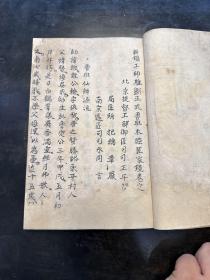 新鐫工師雕斵正式魯班木經匠家鏡卷之一
北京提督工部御匠司司正午榮
局匠所把總章嚴
南京遞匠司司承周言
魯班仙師源流
師諱班姓公輸字依智魯之賢勝路東平村人
父諱賢母吳氏師生於魯定公三年甲戌五月初
七日午時是日白鶴羣集異香滿室經月弗散人
咸奇之甫七歲嬉戲不學父母深以為憂迨十五歲